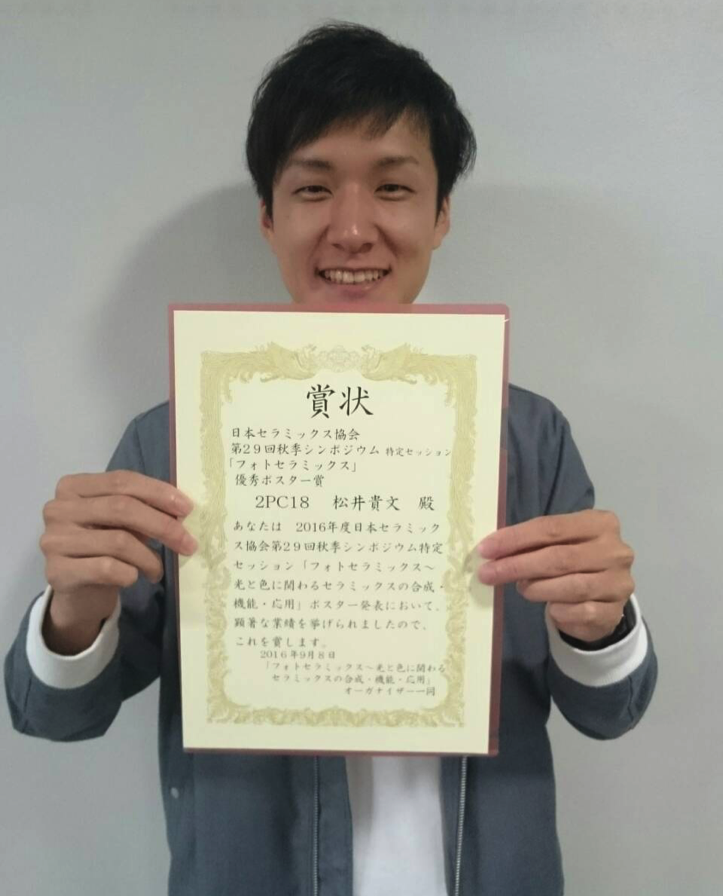 賞状
日本セラミックス協会
第29回秋季シンポジウム 特定セッション
「フォトセラミックス」
優秀ポスター賞
2PC18 松井貴文 殿
あなたは 2016年度日本セラミック
ス協会第29回秋季シンポジウム特定
セッション「フォトセラミックス～
光と色に関わるセラミックスの合成・
機能・応用」ポスター発表において、
顕著な業績を挙げられましたので、
これを賞します。
2016年9月8日
「フォトセラミックス～光と色に関わる
セラミックスの合成・機能・応用」
オーガナイザー一同